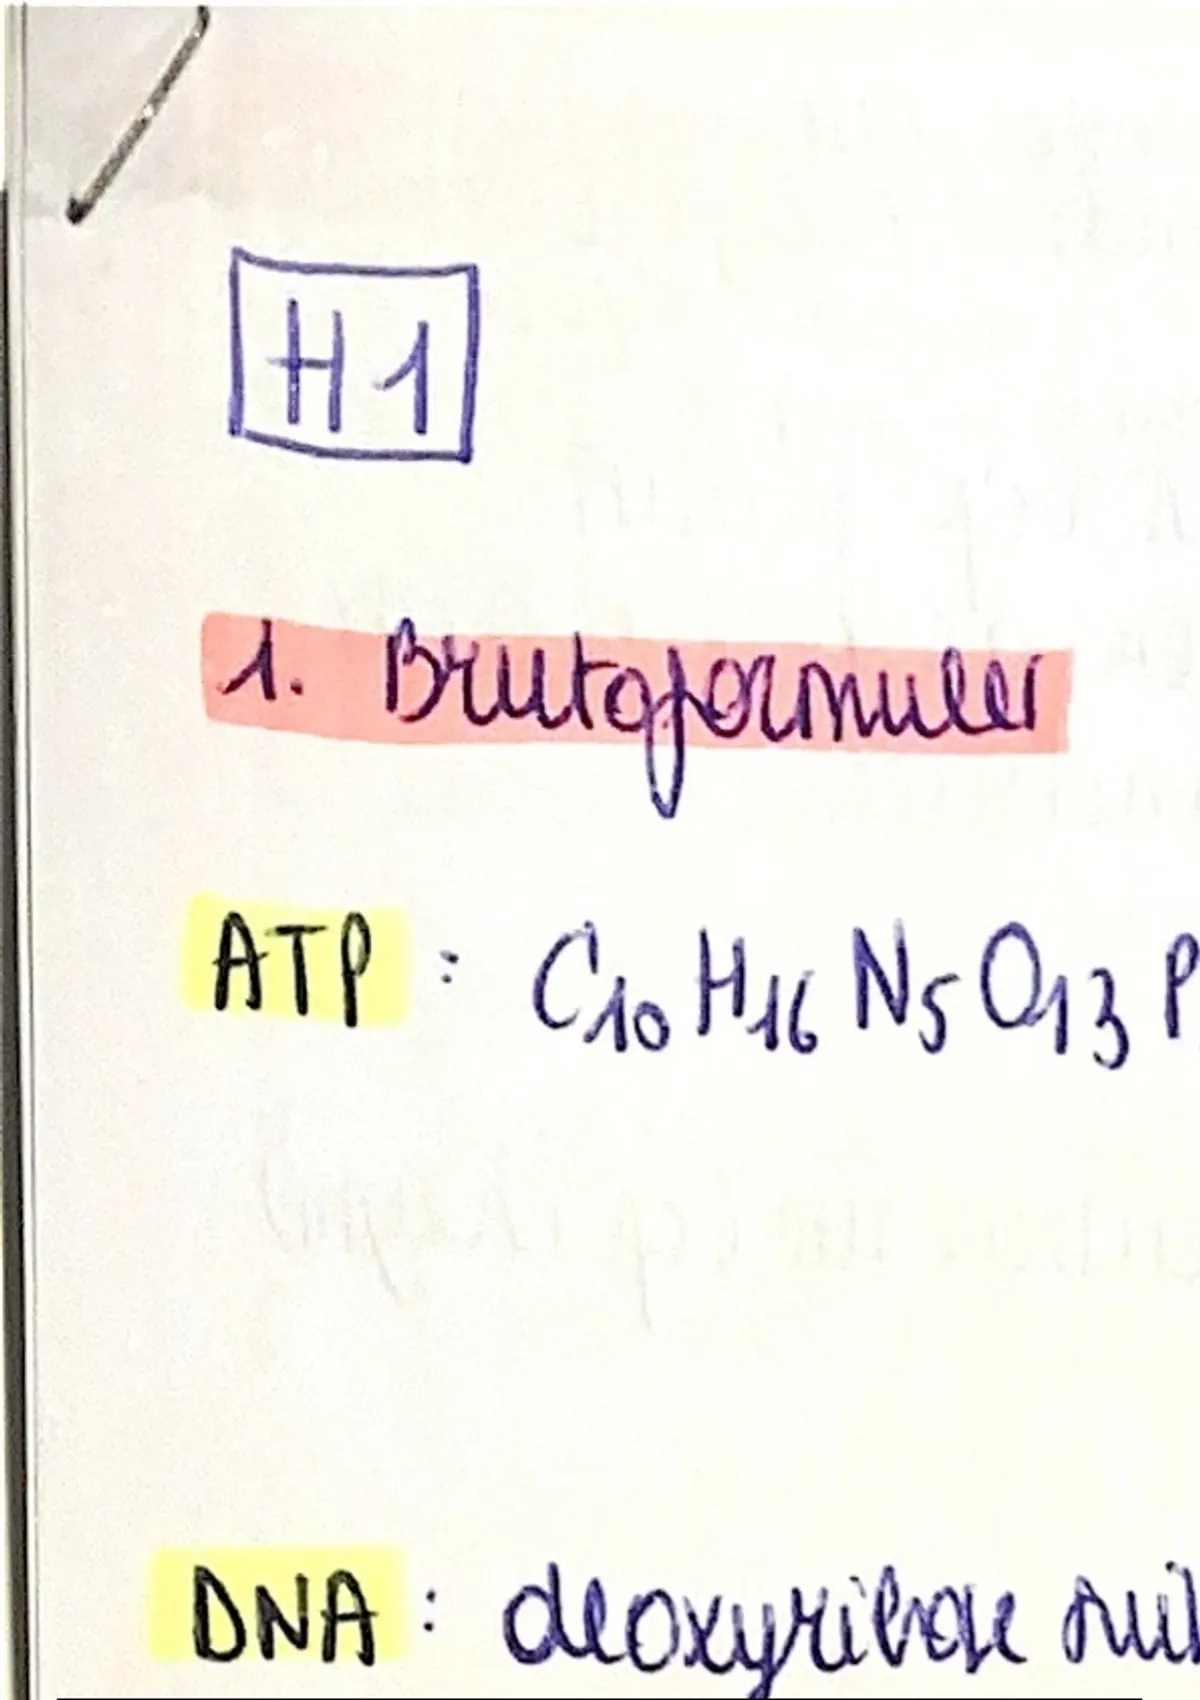 H1
1. Brutoformules
ATP : C₁₀H₁₆N₅O₁₃P
DNA : deoxyribose